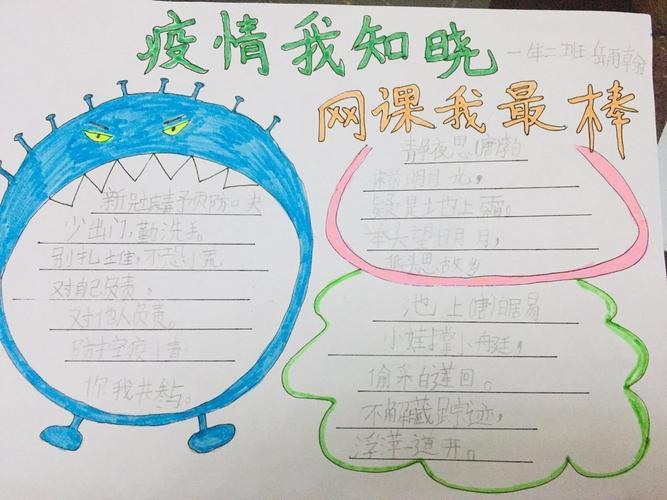 疫情我知晓
一年二班 岳雨翰
网课我最棒
新冠疫情预防口决
少出门，勤洗手。
别扎堆，不恐慌
对自己负责，
对他人负责。
防控疫情
你我共参与。
静夜思 唐 李白
床前明月光，
疑是地上霜。
举头望明月，
低头思故乡
池上 唐 白居易
小娃撑小艇，
偷采白莲回。
不解藏踪迹，
浮萍一道开。